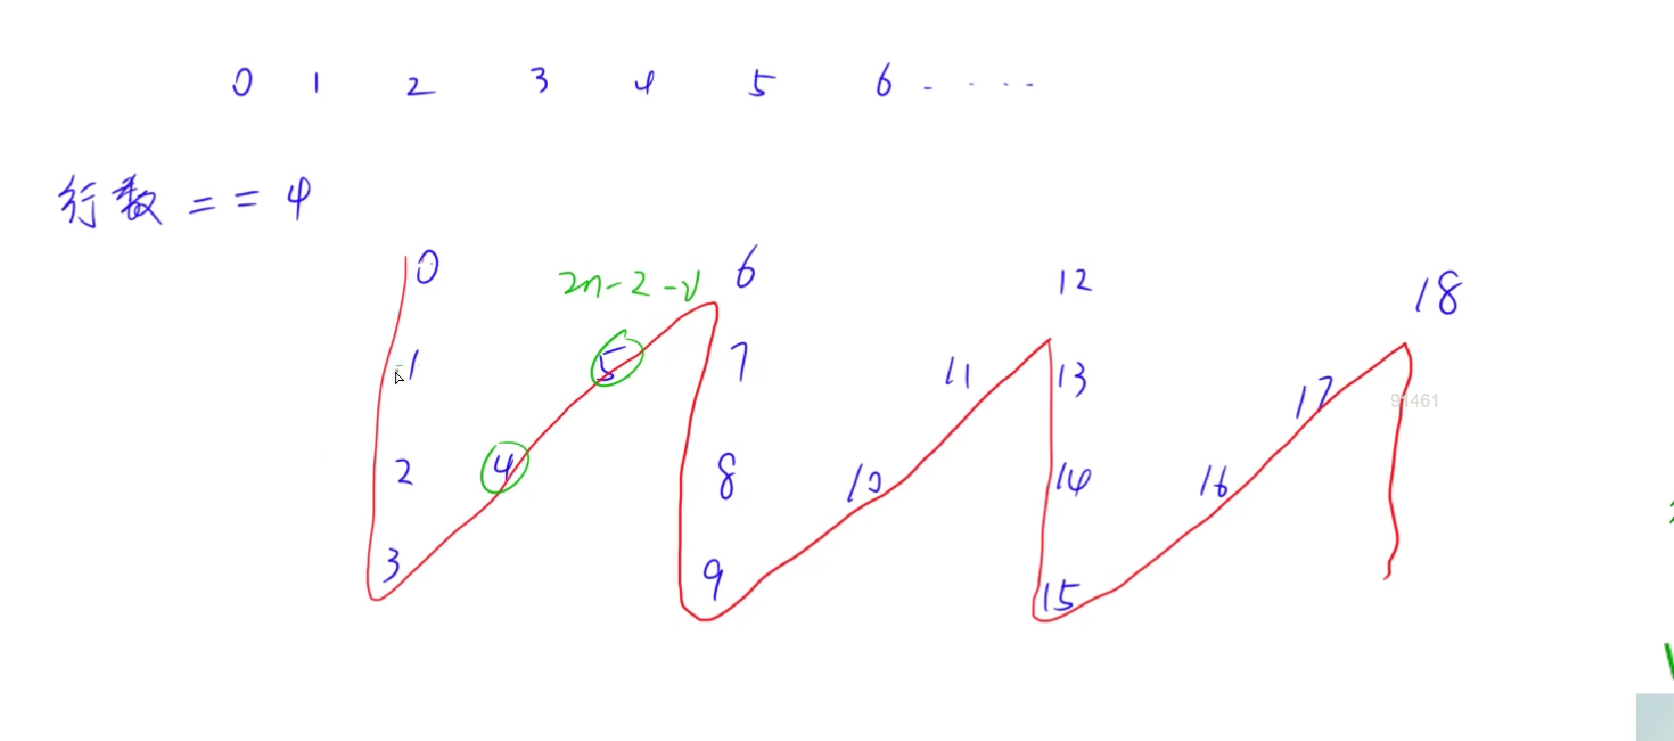 0 1 2 3 4 5 6 - . . . .
行数 == 4
0 6 12 18
2n-2-i
1 5 7 11 13 17
91461
2 4 8 10 14 16
3 9 15